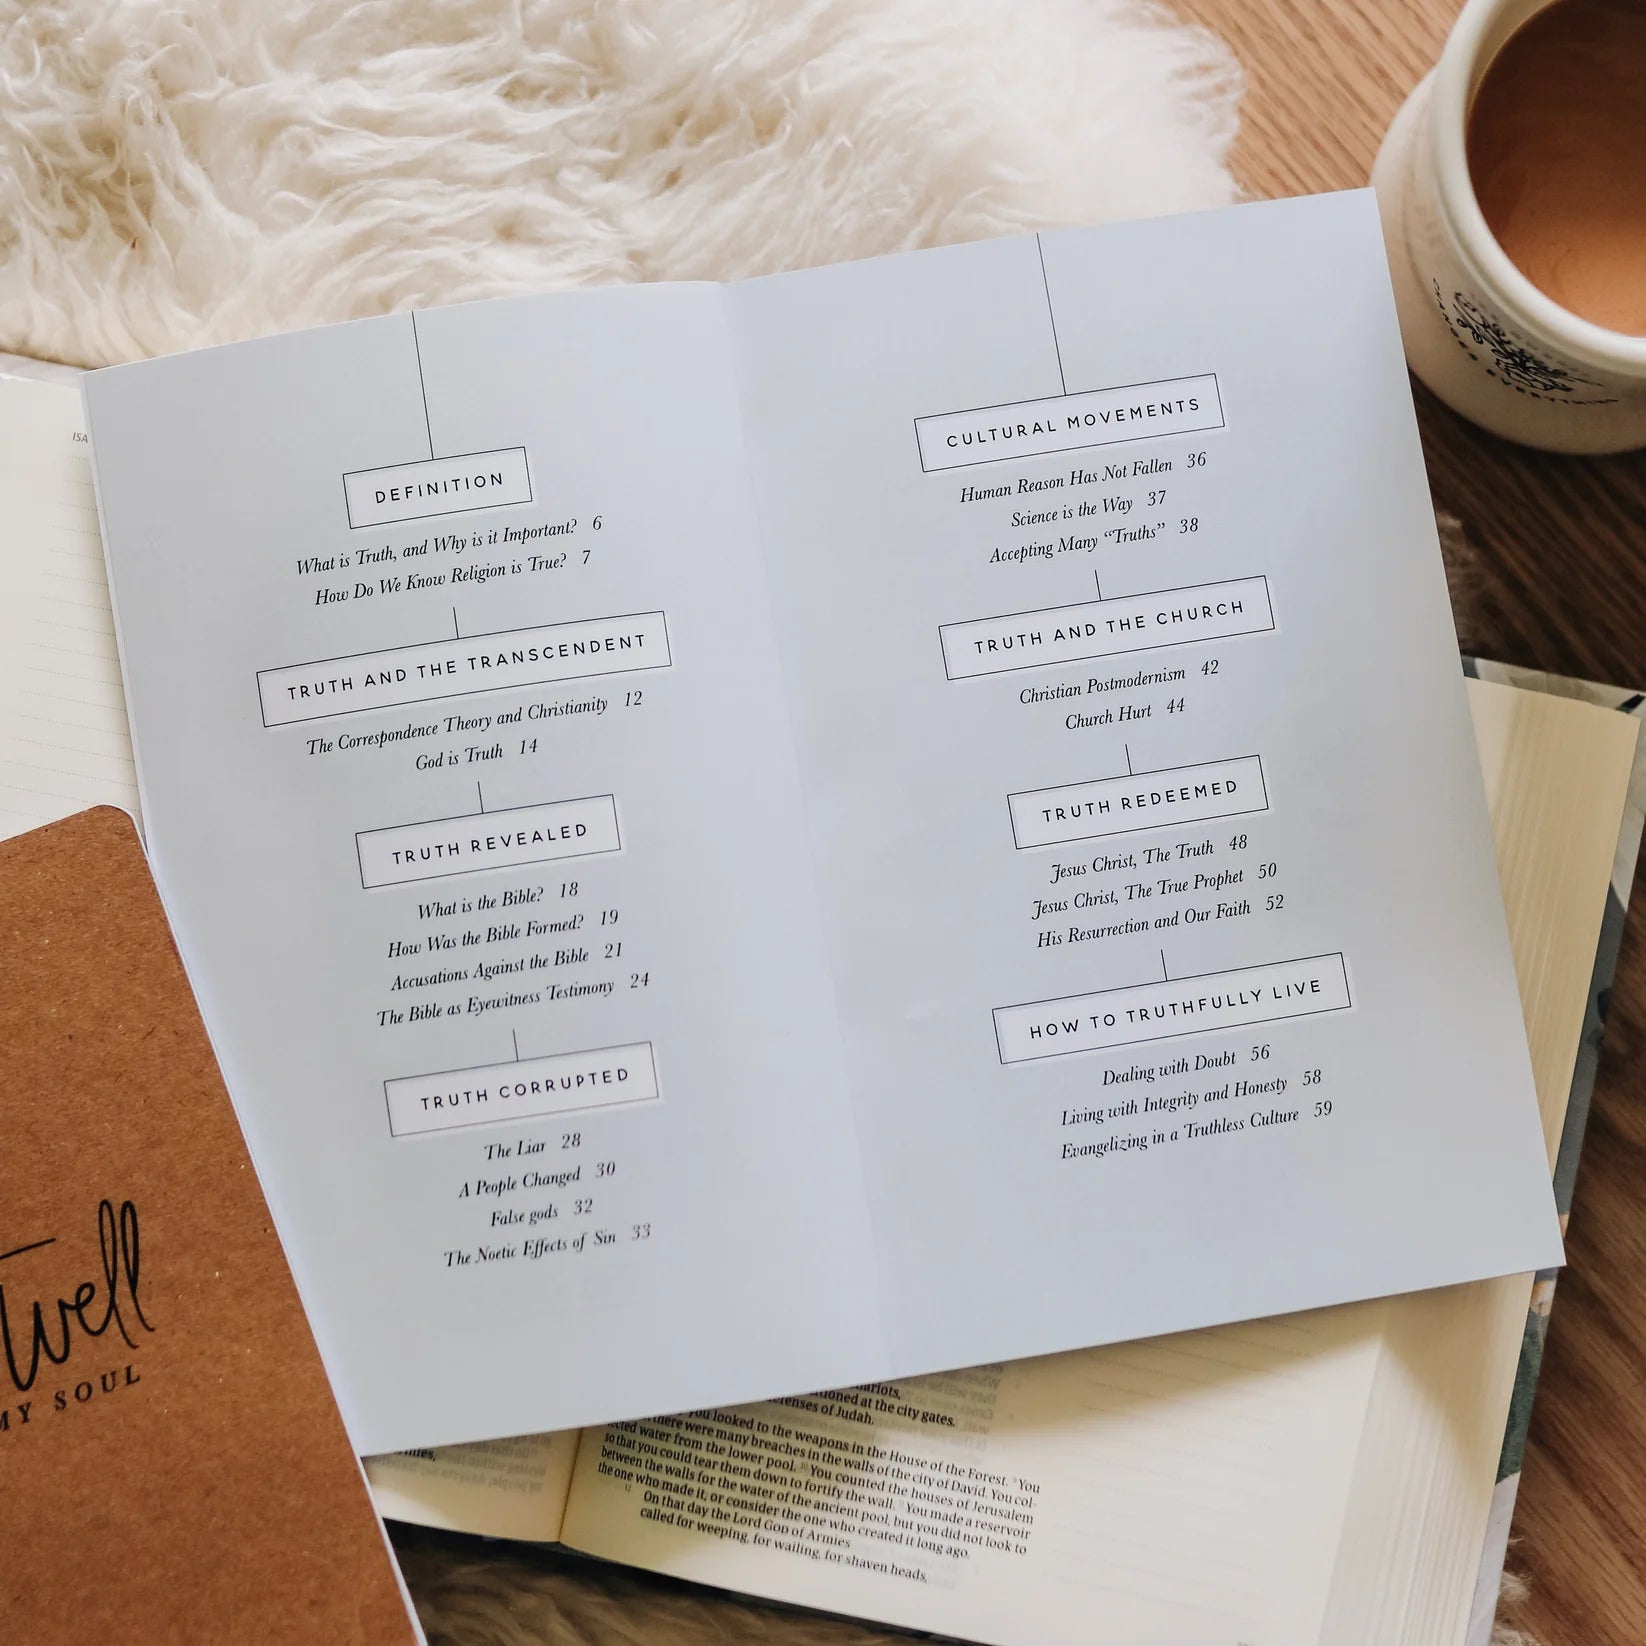 DEFINITION
What is Truth, and Why is it Important? 6
How Do We Know Religion is True? 7
TRUTH AND THE TRANSCENDENT
The Correspondence Theory and Christianity 12
God is Truth 14
TRUTH REVEALED
What is the Bible? 18
How Was the Bible Formed? 19
Accusations Against the Bible 21
The Bible as Eyewitness Testimony 24
TRUTH CORRUPTED
The Liar 28
A People Changed 30
False gods 32
The Noetic Effects of Sin 33
CULTURAL MOVEMENTS
Human Reason Has Not Fallen 36
Science is the Way 37
Accepting Many “Truths” 38
TRUTH AND THE CHURCH
Christian Postmodernism 42
Church Hurt 44
TRUTH REDEEMED
Jesus Christ, The Truth 48
Jesus Christ, The True Prophet 50
His Resurrection and Our Faith 52
HOW TO TRUTHFULLY LIVE
Dealing with Doubt 56
Living with Integrity and Honesty 58
Evangelizing in a Truthless Culture 59
ISA
well
MY SOUL
EVERYTHING
at the city gates.
of Judah.
you looked to the weapons in the House of the Forest. 9 You
there were many breaches in the walls of the city of David. You col-
water from the lower pool. 10 You counted the houses of Jerusalem
so that you could tear them down to fortify the wall. 11 You made a reservoir
between the walls for the water of the ancient pool, but you did not look to
the one who made it, or consider the one who created it long ago.
12 On that day the Lord GOD of Armies
called for weeping, for wailing, for shaven heads,